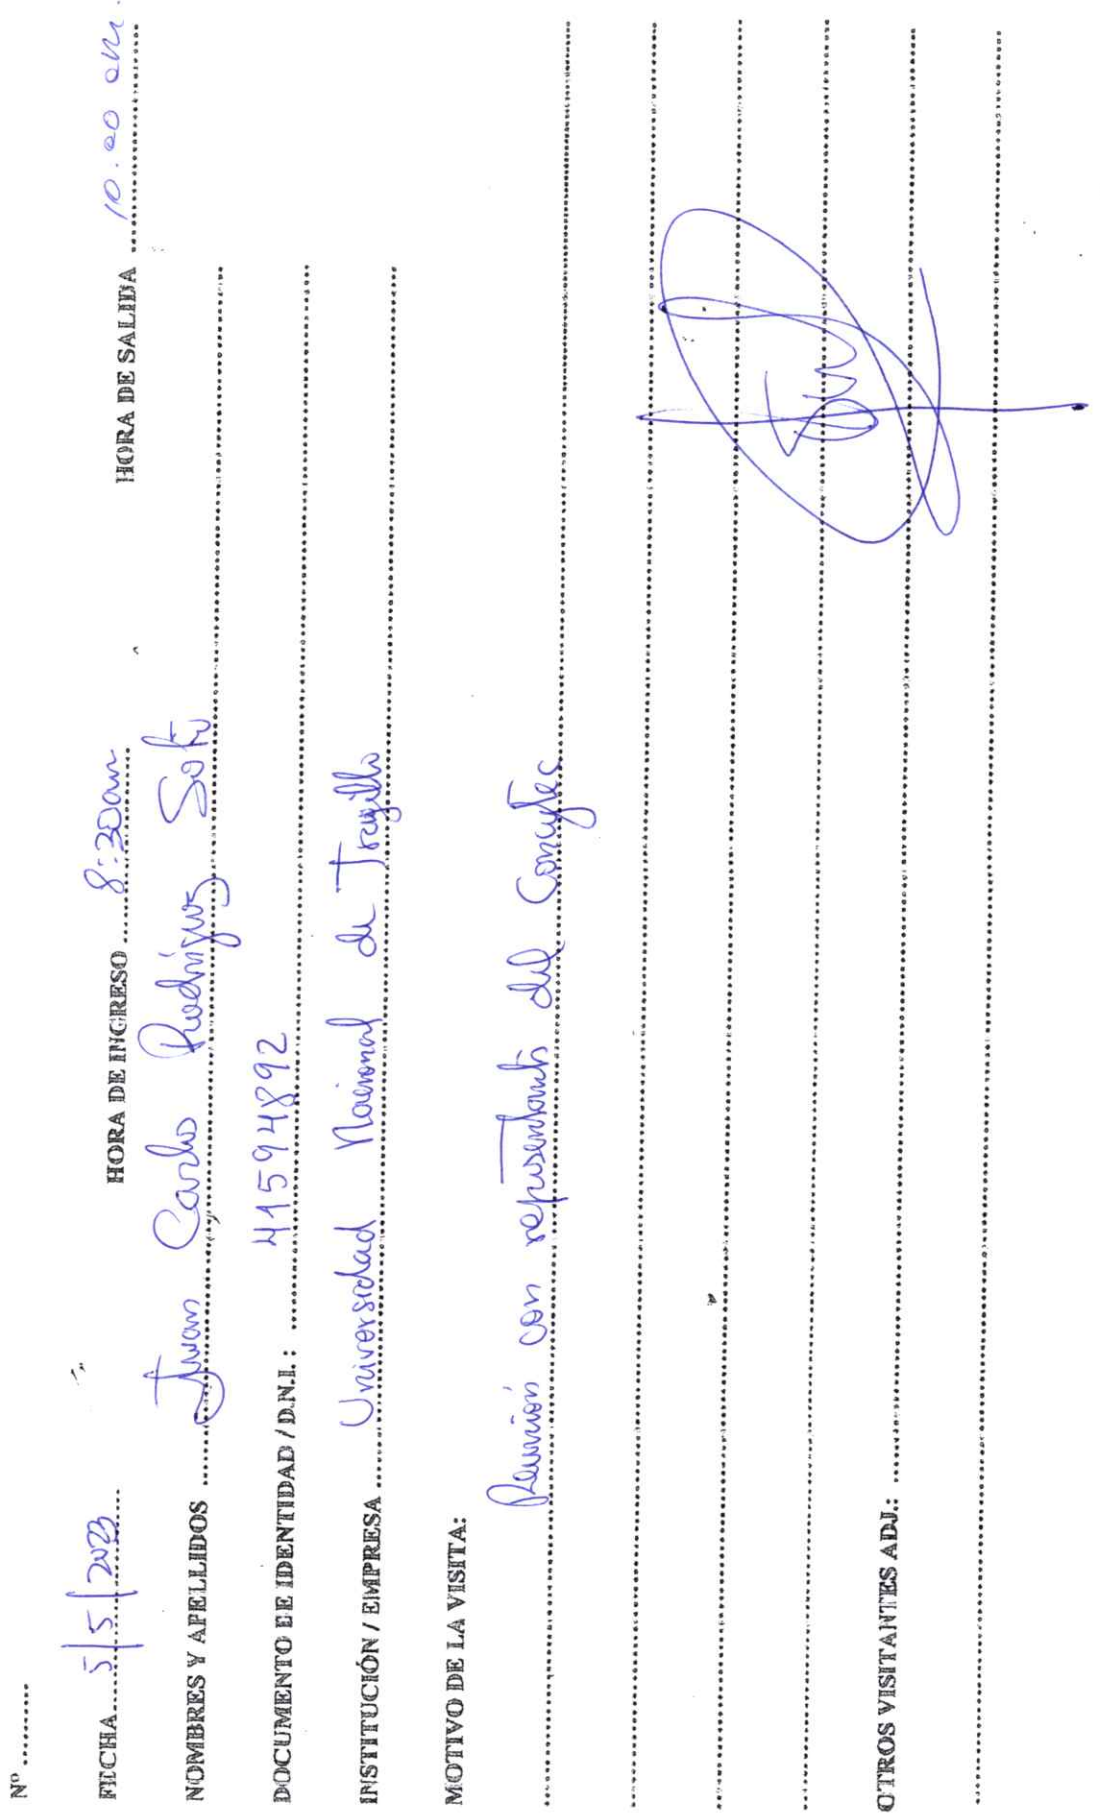 Nº ........
FECHA 5/5/2023 HORA DE INGRESO 8:30am HORA DE SALIDA 10.00 am.
NOMBRES Y APELLIDOS Juan Carlos Rodríguez Soto
DOCUMENTO DE IDENTIDAD / D.N.I.: 41594892
INSTITUCIÓN / EMPRESA Universidad Nacional de Trujillo
MOTIVO DE LA VISITA:
Reunión con representants del Concytec
OTROS VISITANTES ADJ.: